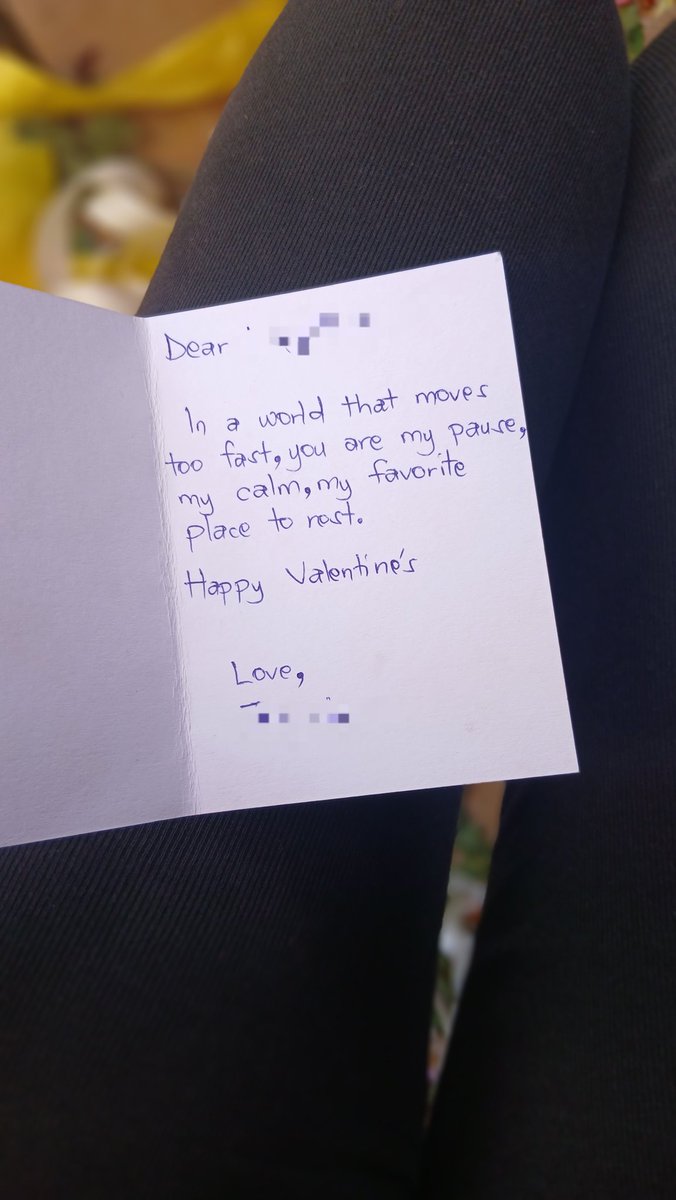 Dear
In a world that moves
too fast, you are my pause,
my calm, my favorite
place to rest.
Happy Valentine's
Love,